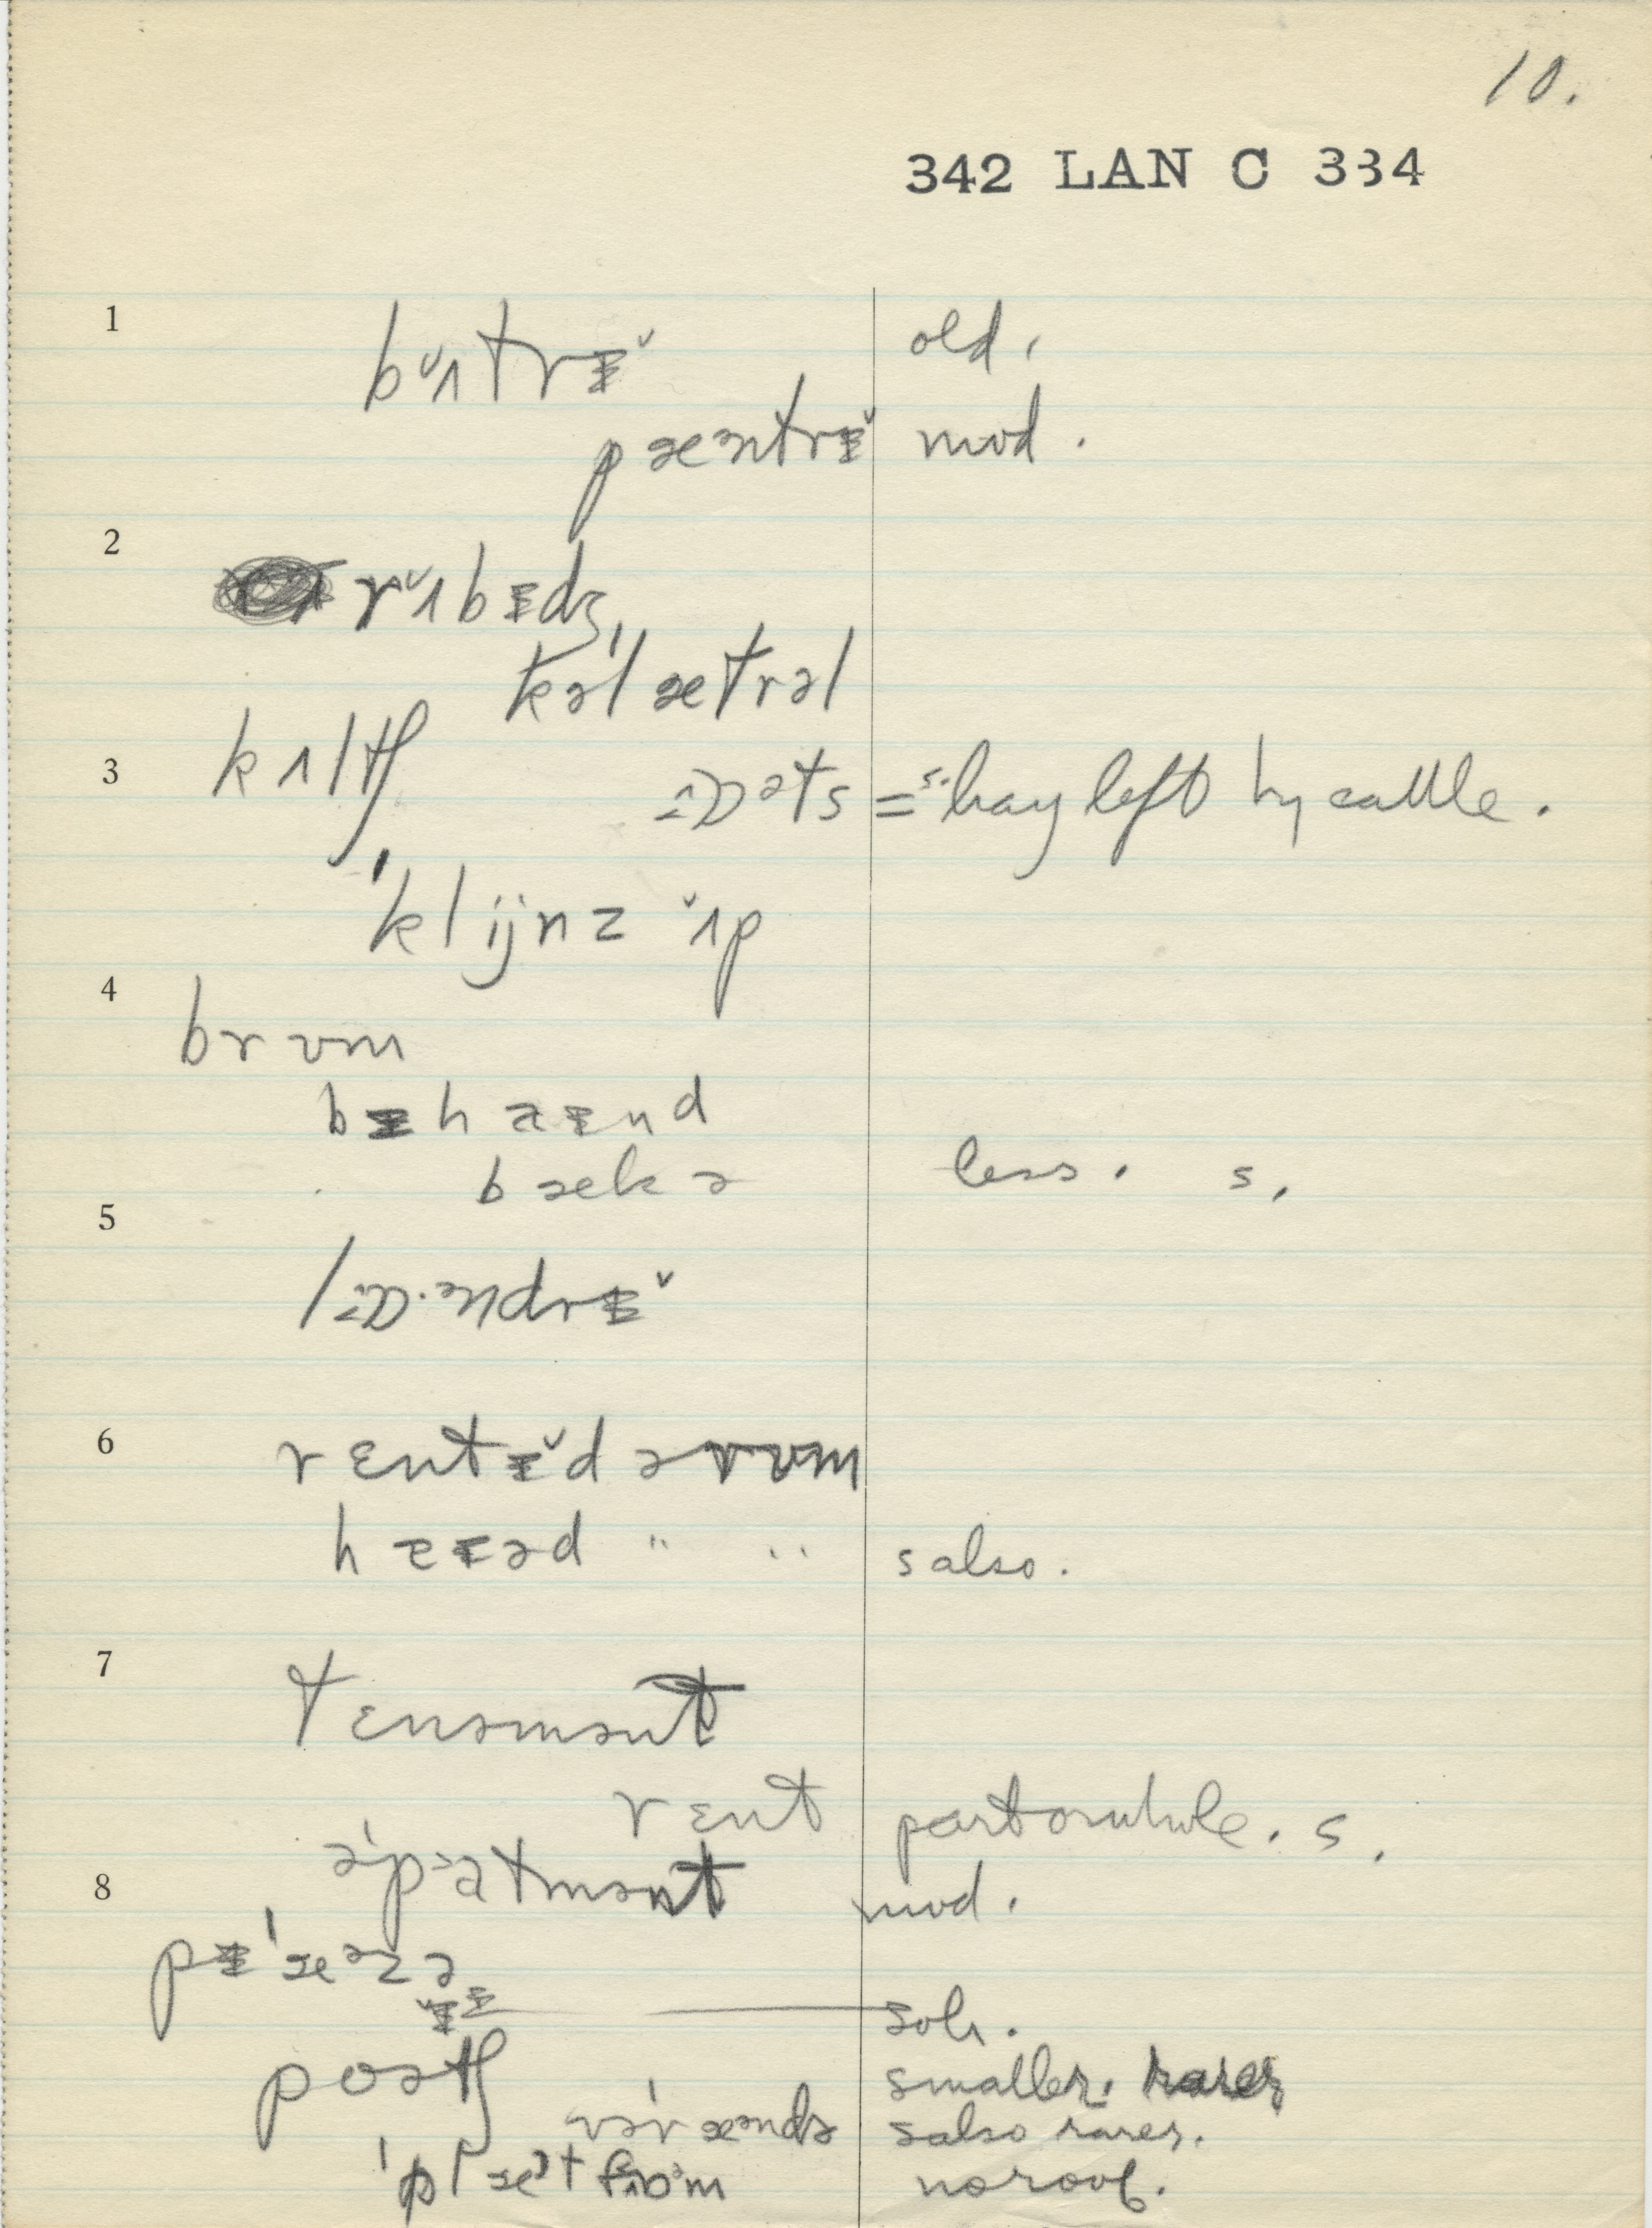 10.
342 LAN C 334
1 bʌ̆trɪ̆ old.
pæəntrɪ̆ mod.
2 rʌ̆bɪdʒ
kəˈlætrəl
kʌltʃ
3 ɔəts = s. hay left by cattle.
ˈklijnz ʌ̆p
4 brʊm
bɪhaɪnd
bækə less. s.
5
lɔəndrɪ̆
6 rɛntɪ̆d ə rʊm
haɪəd " " s also.
7
tɛnəmənt
rɛnt part or whole. s.
əˈpatmənt mod.
8
pɪˈæəzə
sol.
poətʃ smaller. rarer
vəˈrændə s also rarer.
ˈplætfɔəm no roof.